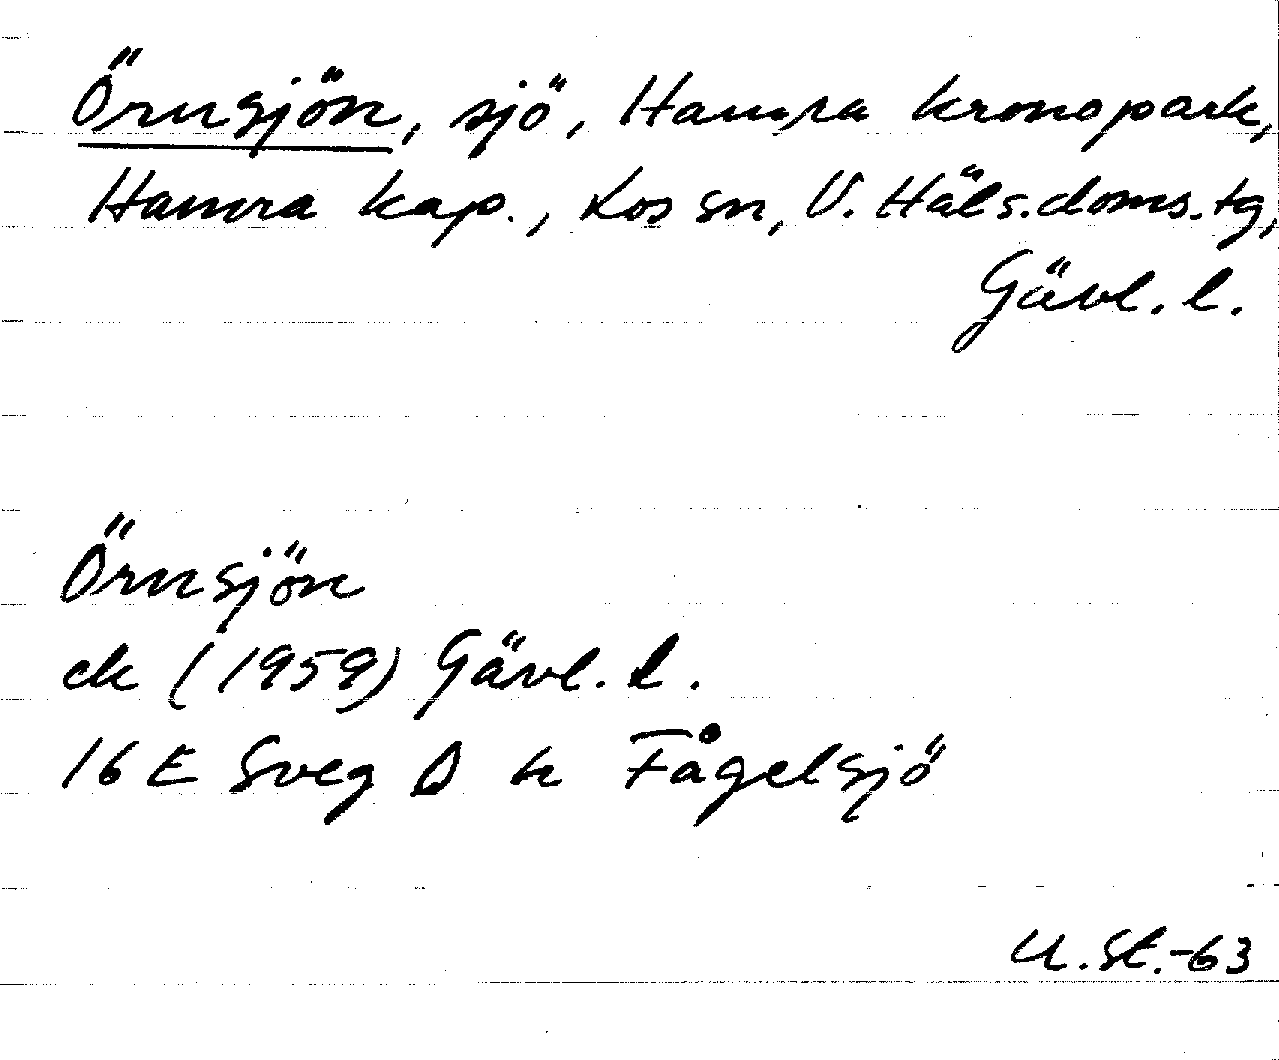 Örnsjön, sjö, Hamra kronopark,
Hamra kap., Los sn, V. Häls. doms. tg,
Gävl. l.
Örnsjön
ek (1959) Gävl. l.
16 E Sveg D k Fågelsjö
U. St. -63